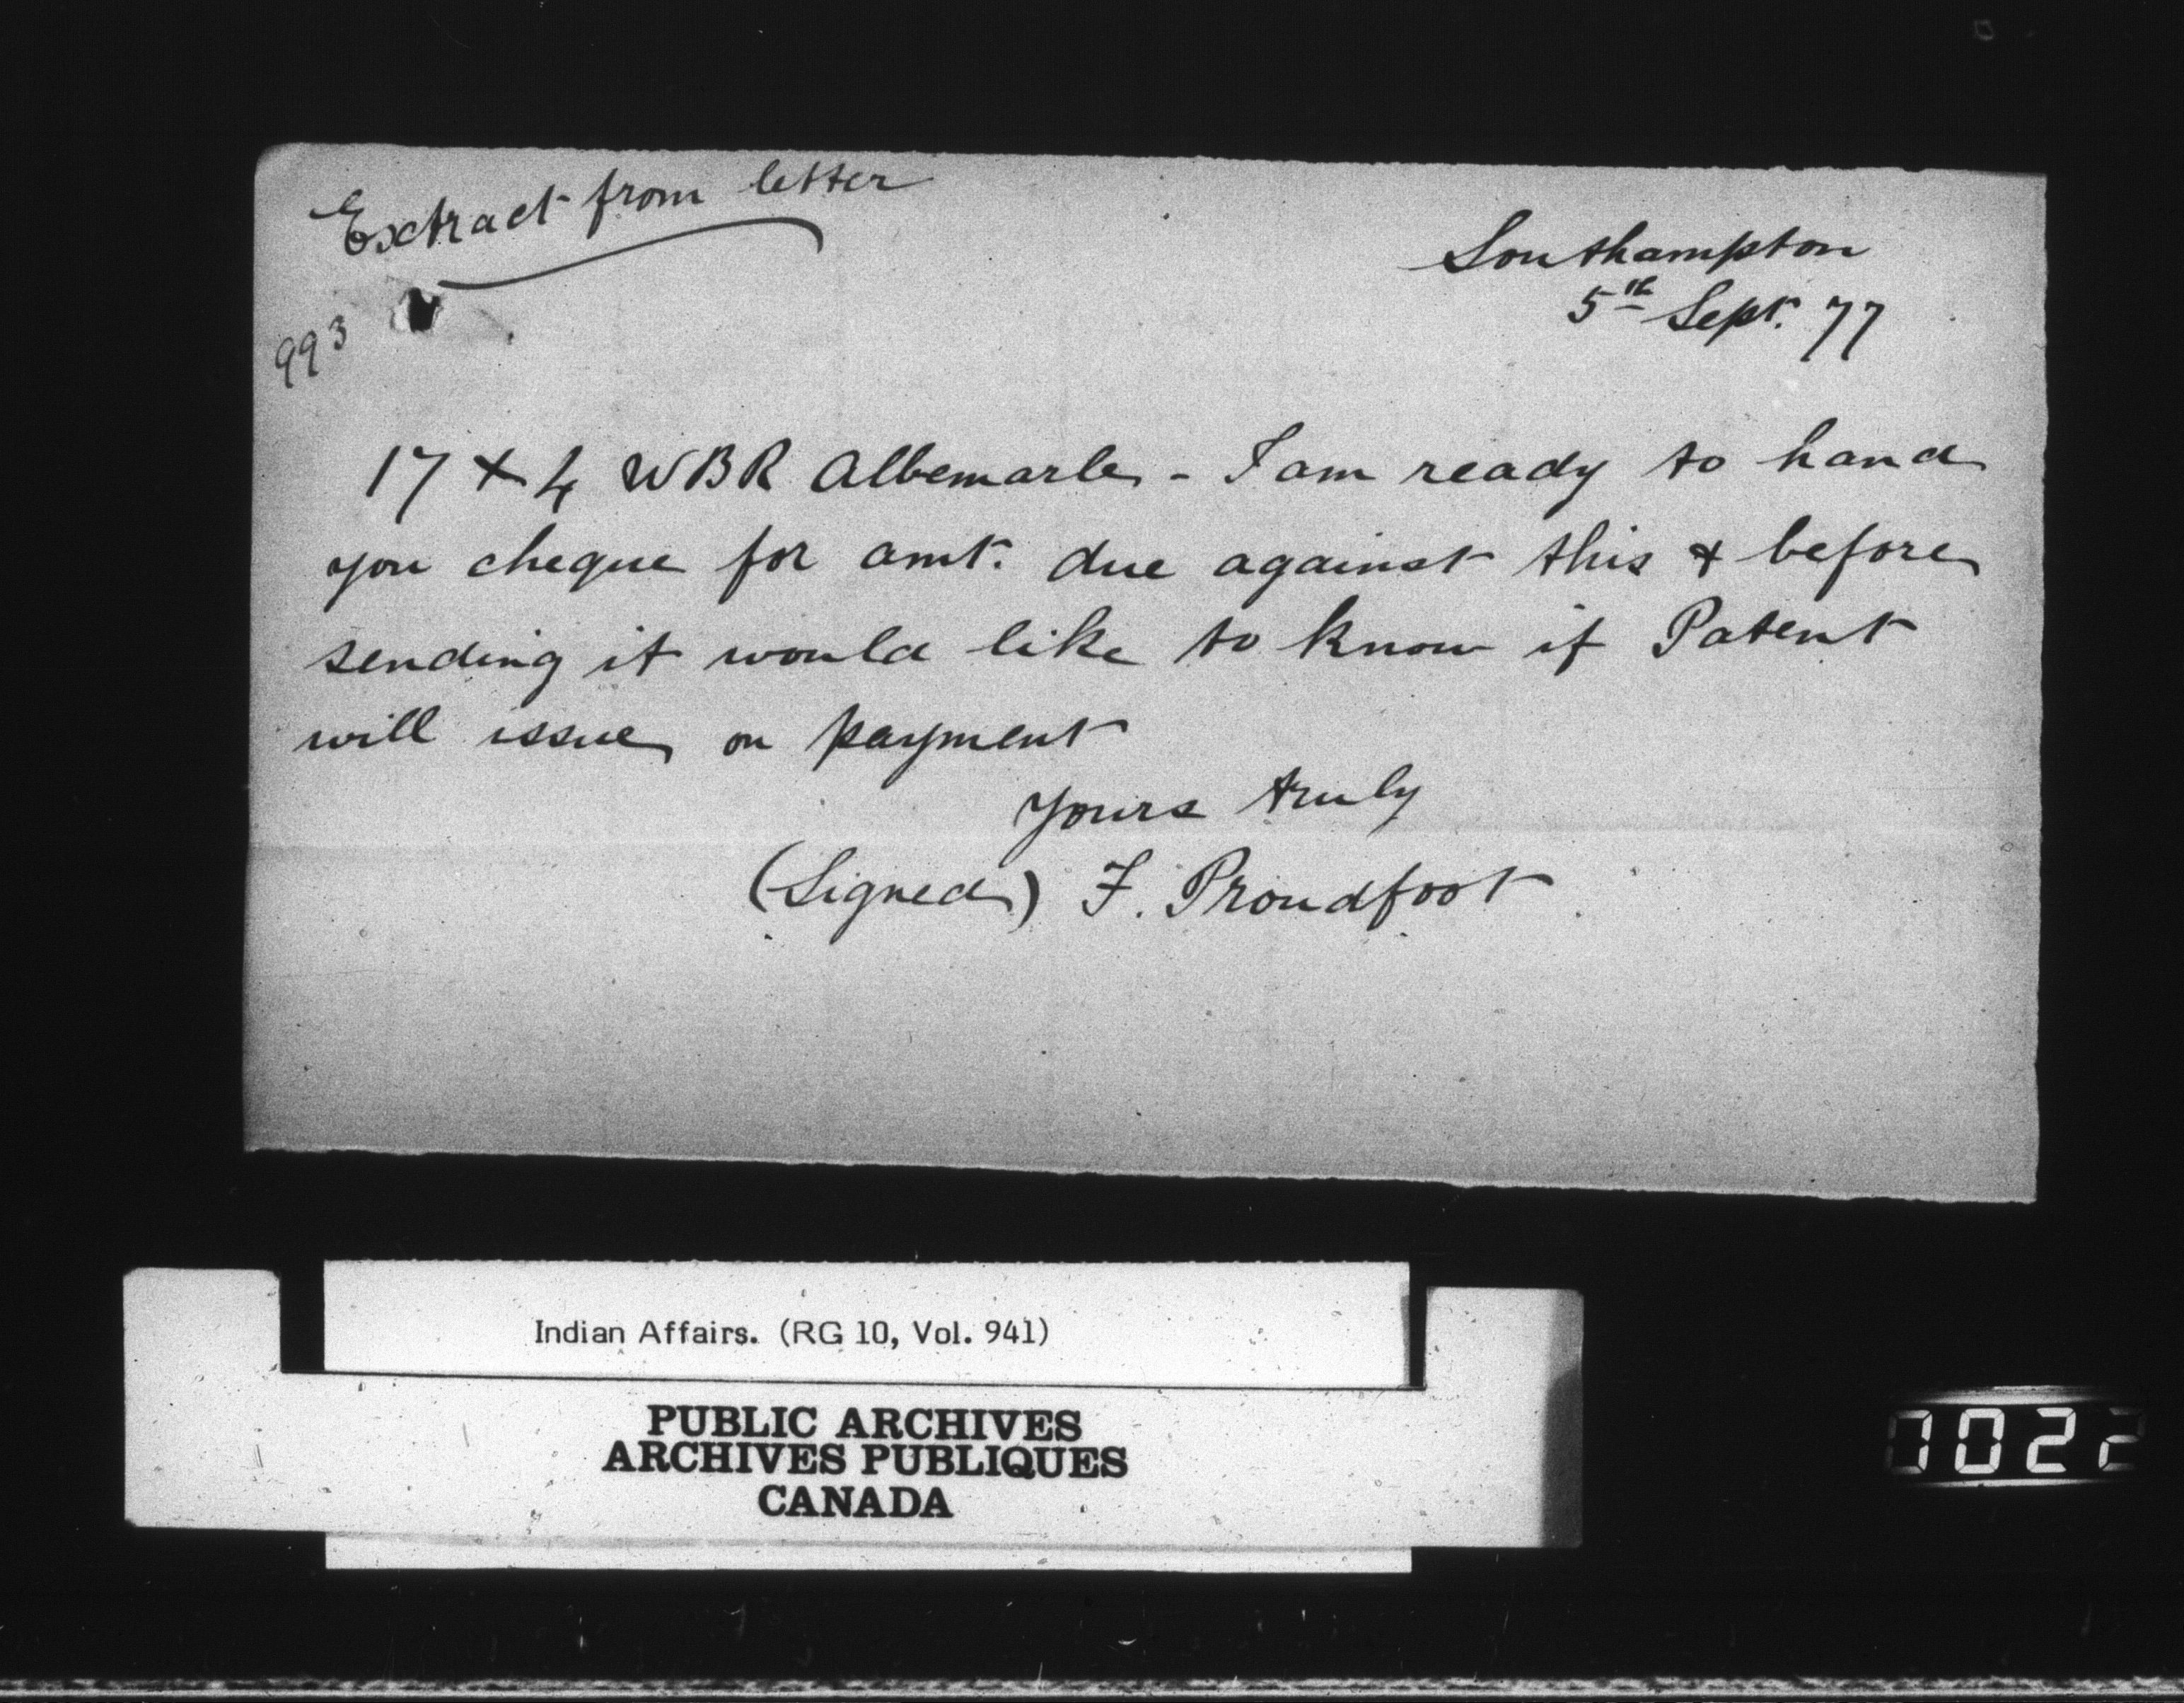 Extract from letter
993
Southampton
5th Sept. 77
17 + 4 WBR Albemarle - I am ready to hand
you cheque for amt. due against this & before
sending it would like to know if Patent
will issue on payment
Yours truly
(Signed) F. Proudfoot
Indian Affairs. (RG 10, Vol. 941)
PUBLIC ARCHIVES
ARCHIVES PUBLIQUES
CANADA
1022